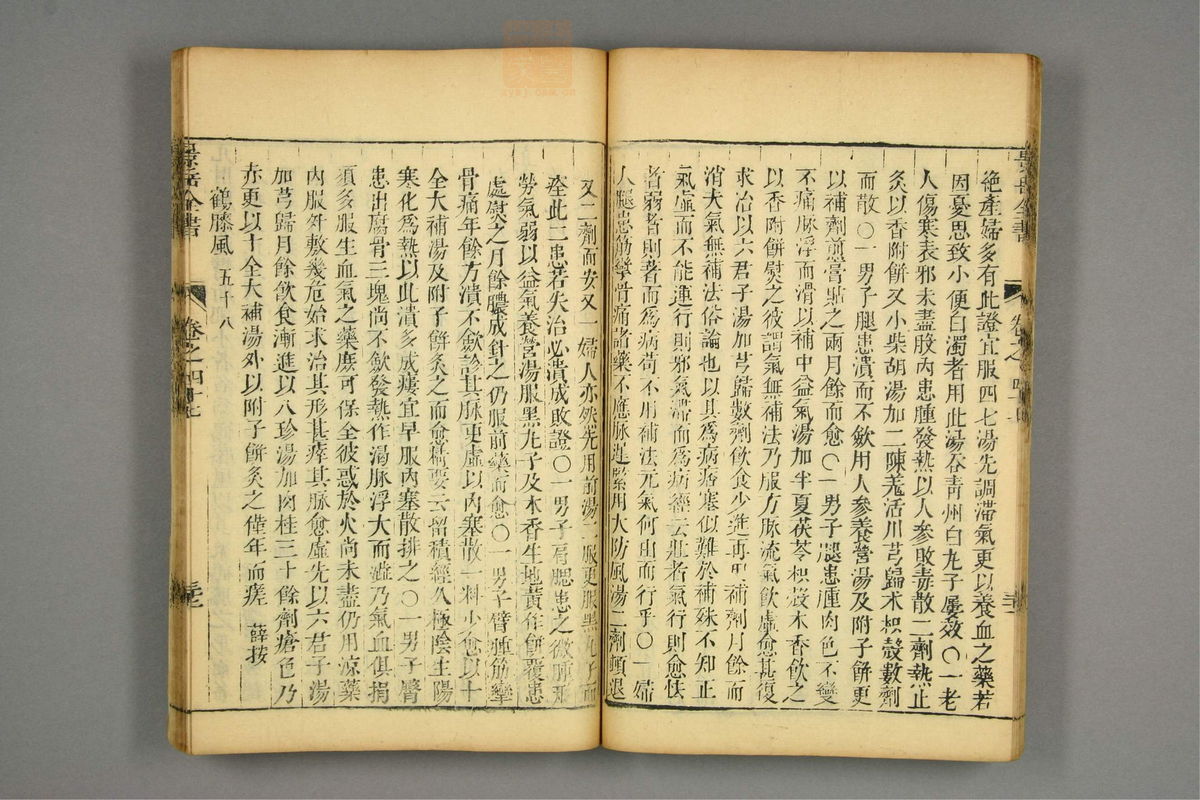 絶產婦多有此證宜服四七湯先調滯氣更以養血之藥若
因憂思致小便白濁者用此湯吞青州白丸子屢效○一老
人傷寒表邪未盡股內患腫發熱以人參敗毒散二劑熱止
灸以香附餅又小柴胡湯加二陳羌活川芎歸术枳殼數劑
而散○一男子腿患潰而不斂用人參養營湯及附子餅更
以補劑煎膏貼之兩月餘而愈○一男子腿患腫肉色不變
不痛脉浮而滑以補中益氣湯加半夏茯苓枳殼木香飲之
以香附餅熨之彼謂氣無補法乃服方脉流氣飲虛愈甚復
求治以六君子湯加芎歸數劑飲食少進再用補劑月餘而
消夫氣無補法俗論也以其為病痞塞似難於補殊不知正
氣虛而不能運行則邪氣滯而為病經云壯者氣行則愈怯
者弱者則著而為病苟不用補法元氣何由而行乎○一婦
人腿患筋攣骨痛諸藥不應脉遲緊用大防風湯二劑頓退
又二劑而安又一婦人亦然先用前湯二服更服黑丸子而
痊此二患若失治必潰成敗證○一男子肩腮患之微腫形
勞氣弱以益氣養營湯服黑丸子及木香生地黃作餅覆患
處熨之月餘膿成針之仍服前藥而愈○一男子臂腫筋攣
骨痛年餘方潰不斂診其脉更虛以內塞散一料少愈以十
全大補湯及附子餅灸之而愈精要云留積經久極陰生陽
寒化為熱以此潰多成瘻宜早服內塞散排之○一男子臀
患出腐骨三塊尚不斂發熱作渴脉浮大而澁乃氣血俱損
須多服生血氣之藥庶可保全彼惑於火尚未盡仍用涼藥
內服外敷幾危始求治其形甚瘁其脉愈虛先以六君子湯
加芎歸月餘飲食漸進以八珍湯加肉桂三十餘劑瘡色乃
赤更以十全大補湯外以附子餅灸之僅年而瘥 薛按
鶴膝風 五十八
景岳全書
卷之四十七